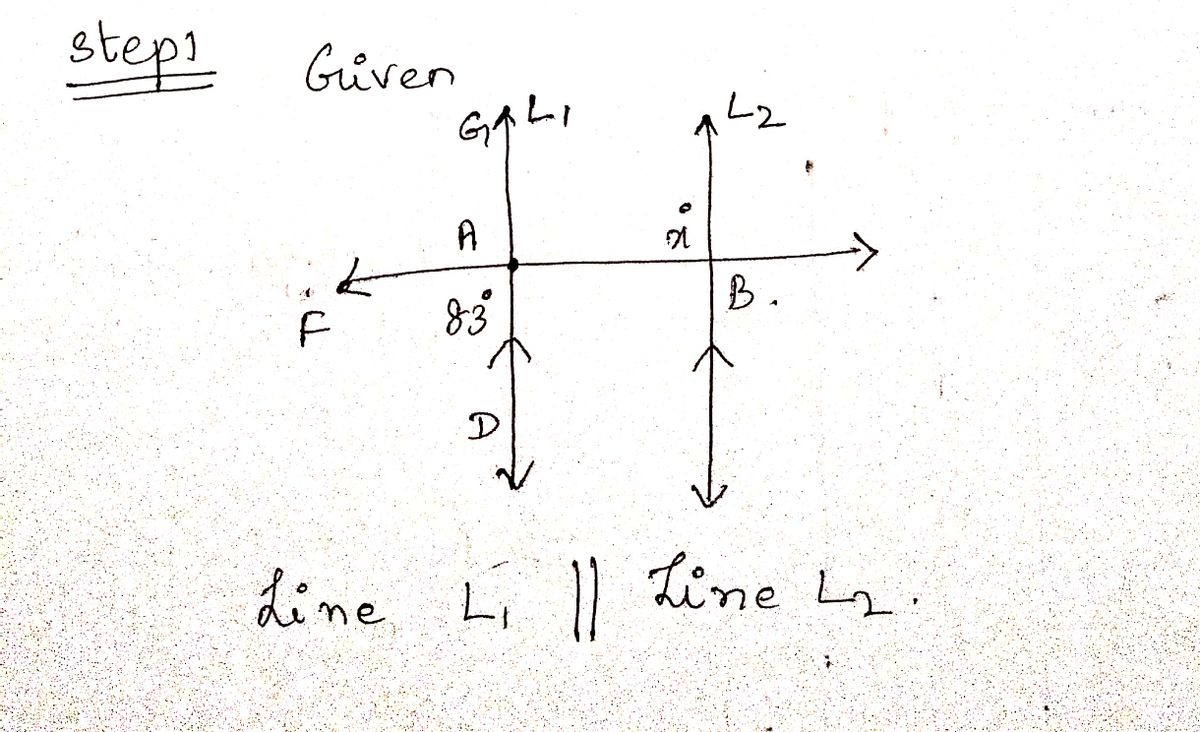 Step1
Given
G L1
L2
A
x°
F
83°
B.
D
Line L1 || Line L2.